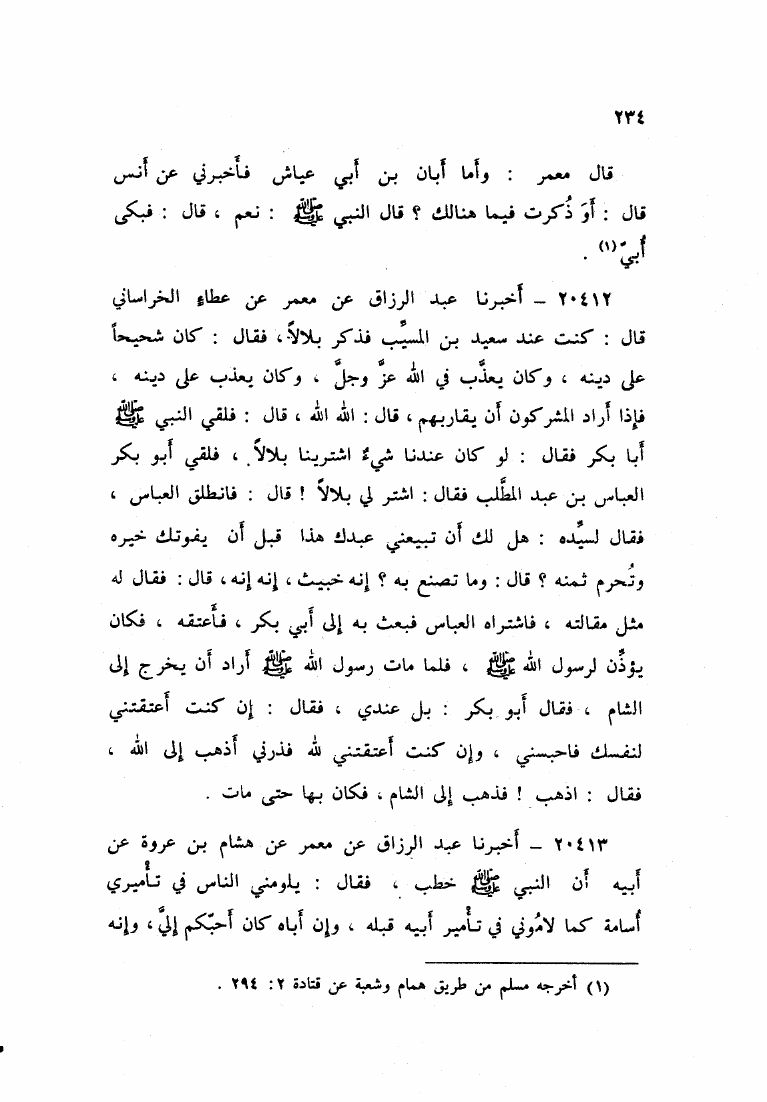 ٢٣٤
قال معمر : وأما أبان بن أبي عياش فأخبرني عن أنس
قال : أَوَ ذُكرت فيما هنالك ؟ قال النبي ﷺ : نعم ، قال : فبكى
أُبيّ(١) .
٢٠٤١٢ – أخبرنا عبد الرزاق عن معمر عن عطاءٍ الخراساني
قال : كنت عند سعيد بن المسيَّب فذكر بلالاً ، فقال : كان شحيحاً
على دينه ، وكان يعذَّب في الله عزَّ وجلَّ ، وكان يعذب على دينه ،
فإذا أراد المشركون أن يقاربهم ، قال : الله الله ، قال : فلقي النبي ﷺ
أبا بكر فقال : لو كان عندنا شيءٌ اشترينا بلالاً ، فلقي أبو بكر
العباس بن عبد المطَّلب فقال : اشتر لي بلالاً ! قال : فانطلق العباس ،
فقال لسيِّده : هل لك أن تبيعني عبدك هذا قبل أن يفوتك خيره
وتُحرم ثمنه ؟ قال : وما تصنع به ؟ إنه خبيث ، إنه إنه ، قال : فقال له
مثل مقالته ، فاشتراه العباس فبعث به إلى أبي بكر ، فأعتقه ، فكان
يؤذِّن لرسول الله ﷺ ، فلما مات رسول الله ﷺ أراد أن يخرج إلى
الشام ، فقال أبو بكر : بل عندي ، فقال : إن كنت أعتقتني
لنفسك فاحبسني ، وإن كنت أعتقتني لله فذرني أذهب إلى الله ،
فقال : اذهب ! فذهب إلى الشام ، فكان بها حتى مات .
٢٠٤١٣ – أخبرنا عبد الرزاق عن معمر عن هشام بن عروة عن
أبيه أن النبي ﷺ خطب ، فقال : يلومني الناس في تأميري
أُسامة كما لامُوني في تأمير أبيه قبله ، وإن أباه كان أحبّكم إليَّ ، وإنه
(١) أخرجه مسلم من طريق همام وشعبة عن قتادة ٢ : ٢٩٤ .